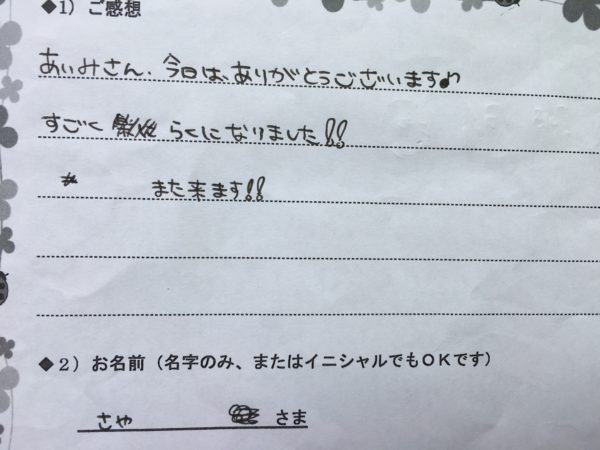 ◆1）ご感想
あいみさん、今日は、ありがとうございます♪
すごく らくになりました!!
また来ます!!
◆2）お名前（名字のみ、またはイニシャルでもＯＫです）
さや さま